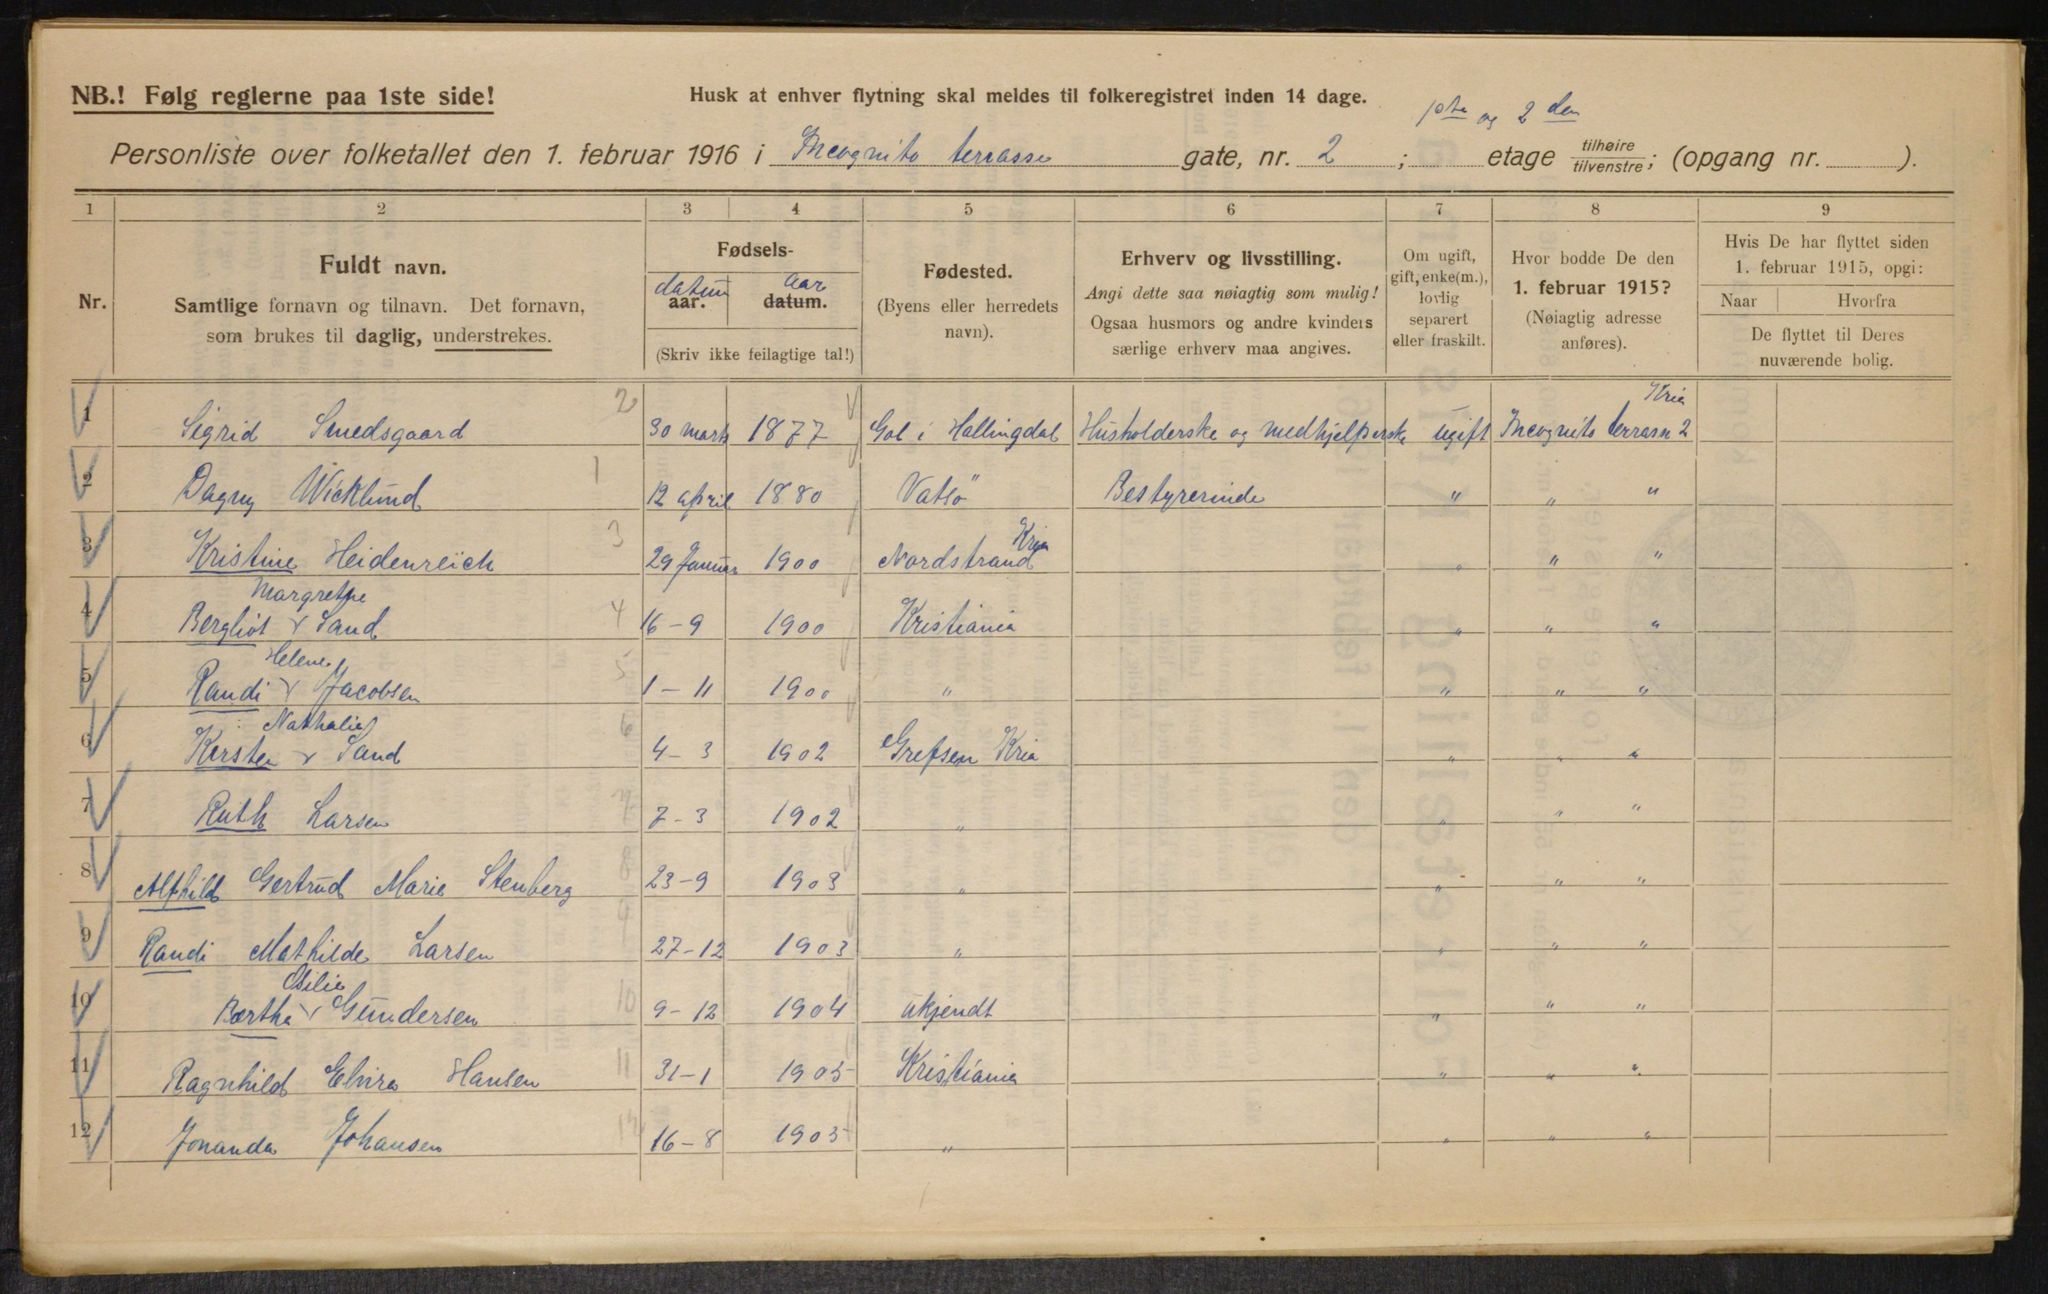 NB.! Følg reglerne paa 1ste side!
Husk at enhver flytning skal meldes til folkeregistret inden 14 dage.
1ste og 2 den
Personliste over folketallet den 1. februar 1916 i Incognito terrasse gate, nr. 2 ; etage tilhøire tilvenstre; (opgang nr. ).
1 2 3 4 5 6 7 8 9
Nr.
Fuldt navn.
Samtlige fornavn og tilnavn. Det fornavn,
som brukes til daglig, understrekes.
Fødsels-
datum aar
aar. datum.
(Skriv ikke feilagtige tal!)
Fødested.
(Byens eller herredets
navn).
Erhverv og livsstilling.
Angi dette saa nøiagtig som mulig!
Ogsaa husmors og andre kvinders
særlige erhverv maa angives.
Om ugift,
gift, enke(m.),
lovlig
separert
eller fraskilt.
Hvor bodde De den
1. februar 1915?
(Nøiagtig adresse
anføres).
Hvis De har flyttet siden
1. februar 1915, opgi:
Naar Hvorfra
De flyttet til Deres
nuværende bolig.
Kria
1 Sigrid Smedsgaard 2 30 marts 1877 Gol i Hallingdal Husholderske og medhjelperske ugift Incognito terrasse 2
2 Dagny Wicklund 1 12 april 1880 Vatsö Bestyrerinde " " "
Kria
3 Kristine Heidenreich 3 29 Januar 1900 Nordstrand " " "
Margrethe
4 Bergliot Sand 4 16-9 1900 Kristiania " " "
Helene
5 Randi Jacobsen 5 1-11 1900 " " " "
Nathalie
6 Kirsten Sand 6 4-3 1902 Grefsen Kria " " "
7 Ruth Larsen 7 7-3 1902 " " " "
8 Alfhild Gertrud Marie Stenberg 8 23-9 1903 " " " "
9 Randi Mathilde Larsen 9 27-12 1903 " " " "
10 Bertha Gundersen 10 9-12 1904 ukjendt " " "
11 Ragnhild Elvira Hansen 11 31-1 1905 Kristiania " " "
12 Jonanda Johansen 12 16-8 1905 " " " "